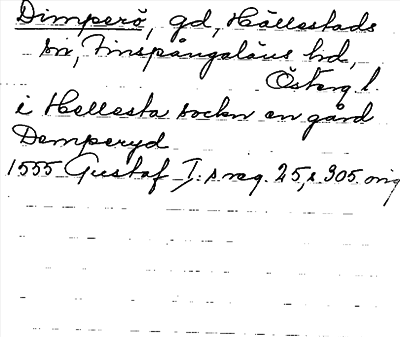 Dimperö, gd, Hällestads
sn, Finspångaläns hd,
Österg l.
i Hellesta sockn en gård
Demperyd
1555 Gustaf I:s reg. 25, s 305 orig